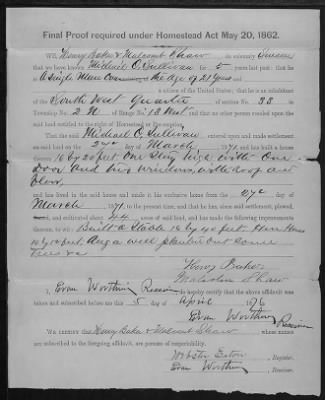 Final Proof required under Homestead Act May 20, 1862.
WE, Henry Baker & Malcomb Shaw do solemnly Swear
that we have known Michael O. Sullivan for 5 years last past; that he
is A Single Man the age of 21 years and
a citizen of the United States; that he is an inhabitant
of the South West Quarter of section No. 33 in
Township No. 2 N of Range No. 13 West and that no other person resided upon the
said land entitled to the right of Homestead or Pre-emption.
That the said Michael O. Sullivan entered upon and made settlement
on said land on the 27th day of March 1871, and has built a house
thereon 16 by 20 feet One Story high with One
Door and two windows, with roof and
floor,
and has lived in the said house and made it his exclusive home from the 27th day
of March 1871 to the present time, and that he has, since said settlement, plowed,
and cultivated about 44 acres of said land, and has made the following improvements
thereon, to wit: Built a Stable 16 by 40 feet Hen House
10 by 12 feet, dug a well planted out some
Trees &c
Henry Baker
Malcolm Shaw
I, Evan Worthing Receiver do hereby certify that the above affidavit was
taken and subscribed before me this 5 day of April 1876
Evan Worthing
Receiver
WE CERTIFY that Henry Baker & Malcomb Shaw whose names
are subscribed to the foregoing affidavit, are persons of respectability.
Webster Eaton, Register.
Evan Worthing, Receiver.